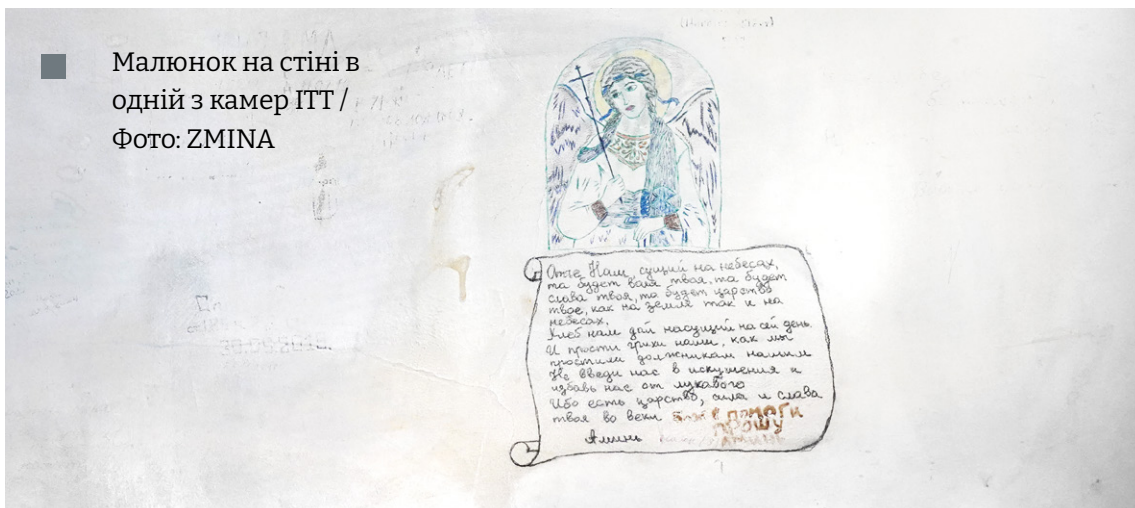 Малюнок на стіні в
одній з камер ІТТ /
Фото: ZMINA
Отче Наш, сущий на небесах,
та будет воля твоя, та будет
слава твоя, та будет царство
твое, как на земле так и на
небесах,
Хлеб нам дай насущий на сей день.
И прости грихи наши, как мы
простили должникам нашим
Не введи нас в искушения и
избавь нас от лукавого
Ибо есть царство, сила и слава
твоя во веки Боже помоги
прошу
Аминь Аминь